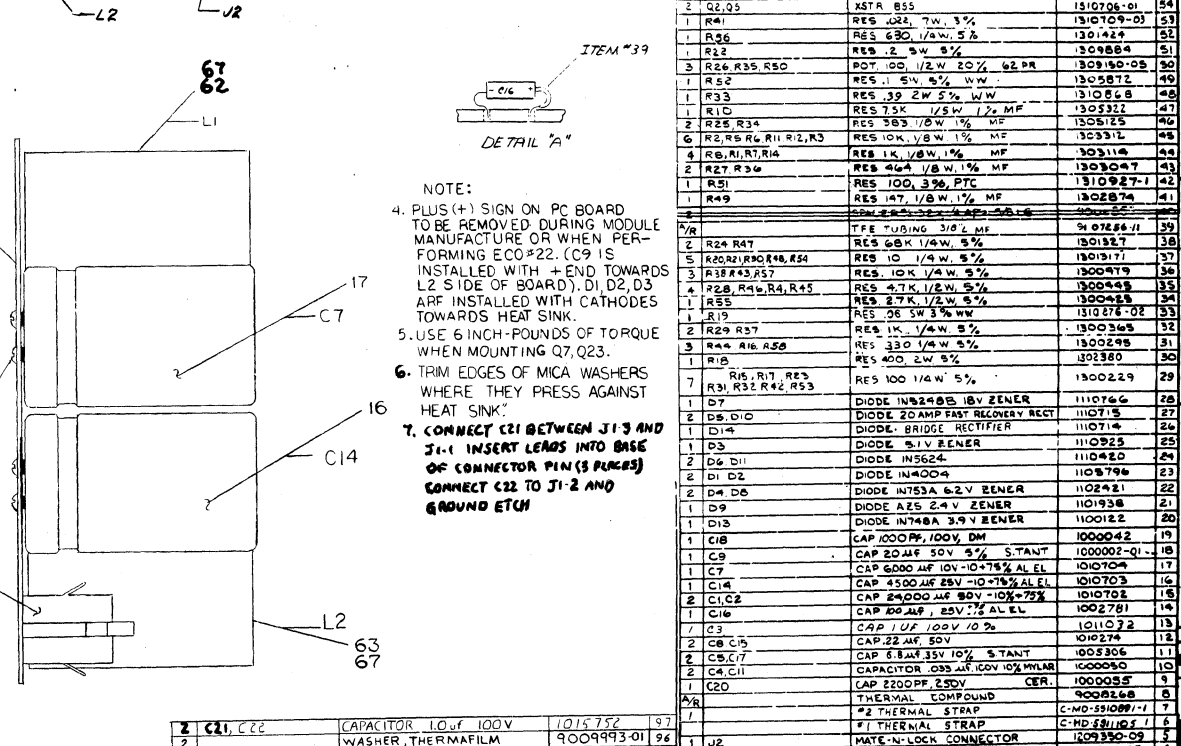 L2
J2
67
62
L1
ITEM #39
- C16 +
DETAIL "A"
NOTE:
4. PLUS(+) SIGN ON PC BOARD
TO BE REMOVED DURING MODULE
MANUFACTURE OR WHEN PER-
FORMING ECO#22. (C9 IS
INSTALLED WITH + END TOWARDS
L2 SIDE OF BOARD). D1, D2, D3
ARE INSTALLED WITH CATHODES
TOWARDS HEAT SINK.
5. USE 6 INCH-POUNDS OF TORQUE
WHEN MOUNTING Q7, Q23.
6. TRIM EDGES OF MICA WASHERS
WHERE THEY PRESS AGAINST
HEAT SINK.
7. CONNECT C21 BETWEEN J1-3 AND
J1-1 INSERT LEADS INTO BASE
OF CONNECTOR PIN (3 PLACES)
CONNECT C22 TO J1-2 AND
GROUND ETCH
17
C7
16
C14
L2
63
67
2 C21, C22 CAPACITOR 1.0uf 100V 1015752 97
2 WASHER, THERMAFILM 9009993-01 96
2 Q2,Q5 XSTR B55 1510706-01 54
1 R41 RES .022, 7W, 3% 1310709-03 53
1 R56 RES 630, 1/4W, 5% 1301424 52
1 R22 RES .2 5W 5% 1309884 51
3 R26,R35,R50 POT, 100, 1/2W 20% 62 PR 1309150-05 50
1 R52 RES .1 5W, 5% WW 1305872 49
1 R33 RES .39 2W 5% WW 1310868 48
1 R10 RES 7.5K 1/5W 1% MF 1305322 47
2 R25, R34 RES 383, 1/8W 1% MF 1305125 46
6 R2,R5 R6, R11 R12,R3 RES 10K, 1/8W 1% MF 1303312 45
4 R8,R1,R7,R14 RES 1K, 1/8W, 1% MF 1303114 44
2 R27, R36 RES 464 1/8 W, 1% MF 1303047 43
1 R51 RES 100, 3%, PTC 1310927-1 42
1 R49 RES 147, 1/8 W, 1% MF 1302874 41
A/R TFE TUBING 3/8"L MF 9107256-11 39
2 R24 R47 RES 68K 1/4W, 5% 1301327 38
5 R20,R21,R30,R48,R54 RES 10 1/4W, 5% 1301317 37
3 R38 R43,R57 RES. 10K 1/4 W, 5% 1300479 36
4 R28, R46, R4, R45 RES 4.7K, 1/2W, 5% 1300445 35
1 R55 RES. 2.7K, 1/2W, 5% 1300425 34
1 R19 RES .06 5W 3% WW 1310276-02 33
2 R29 R37 RES 1K, 1/4W. 5% 1300365 32
3 R44 R16, R58 RES 330 1/4 W 5% 1300295 31
1 R18 RES 400, 2W 5% 1302380 30
7 R15, R17, R23 R31, R32 R42, R53 RES 100 1/4W 5% 1300229 29
1 D7 DIODE IN5248B 18V ZENER 1110766 28
2 D5, D10 DIODE 20 AMP FAST RECOVERY RECT 1110715 27
1 D14 DIODE, BRIDGE RECTIFIER 1110714 26
1 D3 DIODE 5.1V ZENER 1110925 25
2 D6 D11 DIODE IN5624 1110420 24
2 D1 D2 DIODE IN4004 1105796 23
2 D4, D8 DIODE IN753A 6.2V ZENER 1102421 22
1 D9 DIODE AZ5 2.4V ZENER 1101938 21
1 D13 DIODE IN748A 3.9V ZENER 1100122 20
1 C18 CAP 1000PF, 100V, DM 1000042 19
1 C9 CAP 20uf 50V 5% S.TANT 1000002-01 18
1 C7 CAP 6,000 uf 10V -10+75% AL EL 1010704 17
1 C14 CAP 4500 uf 25V -10+75% AL EL 1010703 16
2 C1,C2 CAP 24,000 uf 30V -10%+75% 1010702 15
1 C16 CAP 100uf, 25V AL EL 1002781 14
1 C3 CAP 1UF 100V 10% 1011032 13
2 C8 C15 CAP .22 uf, 50V 1010274 12
2 C5,C17 CAP 6.8uf 35V 10% S.TANT 1005306 11
2 C4,C11 CAPACITOR .033 uf, 100V 10% MYLAR 1000030 10
1 C20 CAP 2200PF, 250V CER. 1000055 9
A/R THERMAL COMPOUND 9008268 8
1 #2 THERMAL STRAP C-MD-5510891-1 7
1 #1 THERMAL STRAP C-MD-5911105 1 6
1 J2 MATE-N-LOCK CONNECTOR 1209350-09 5